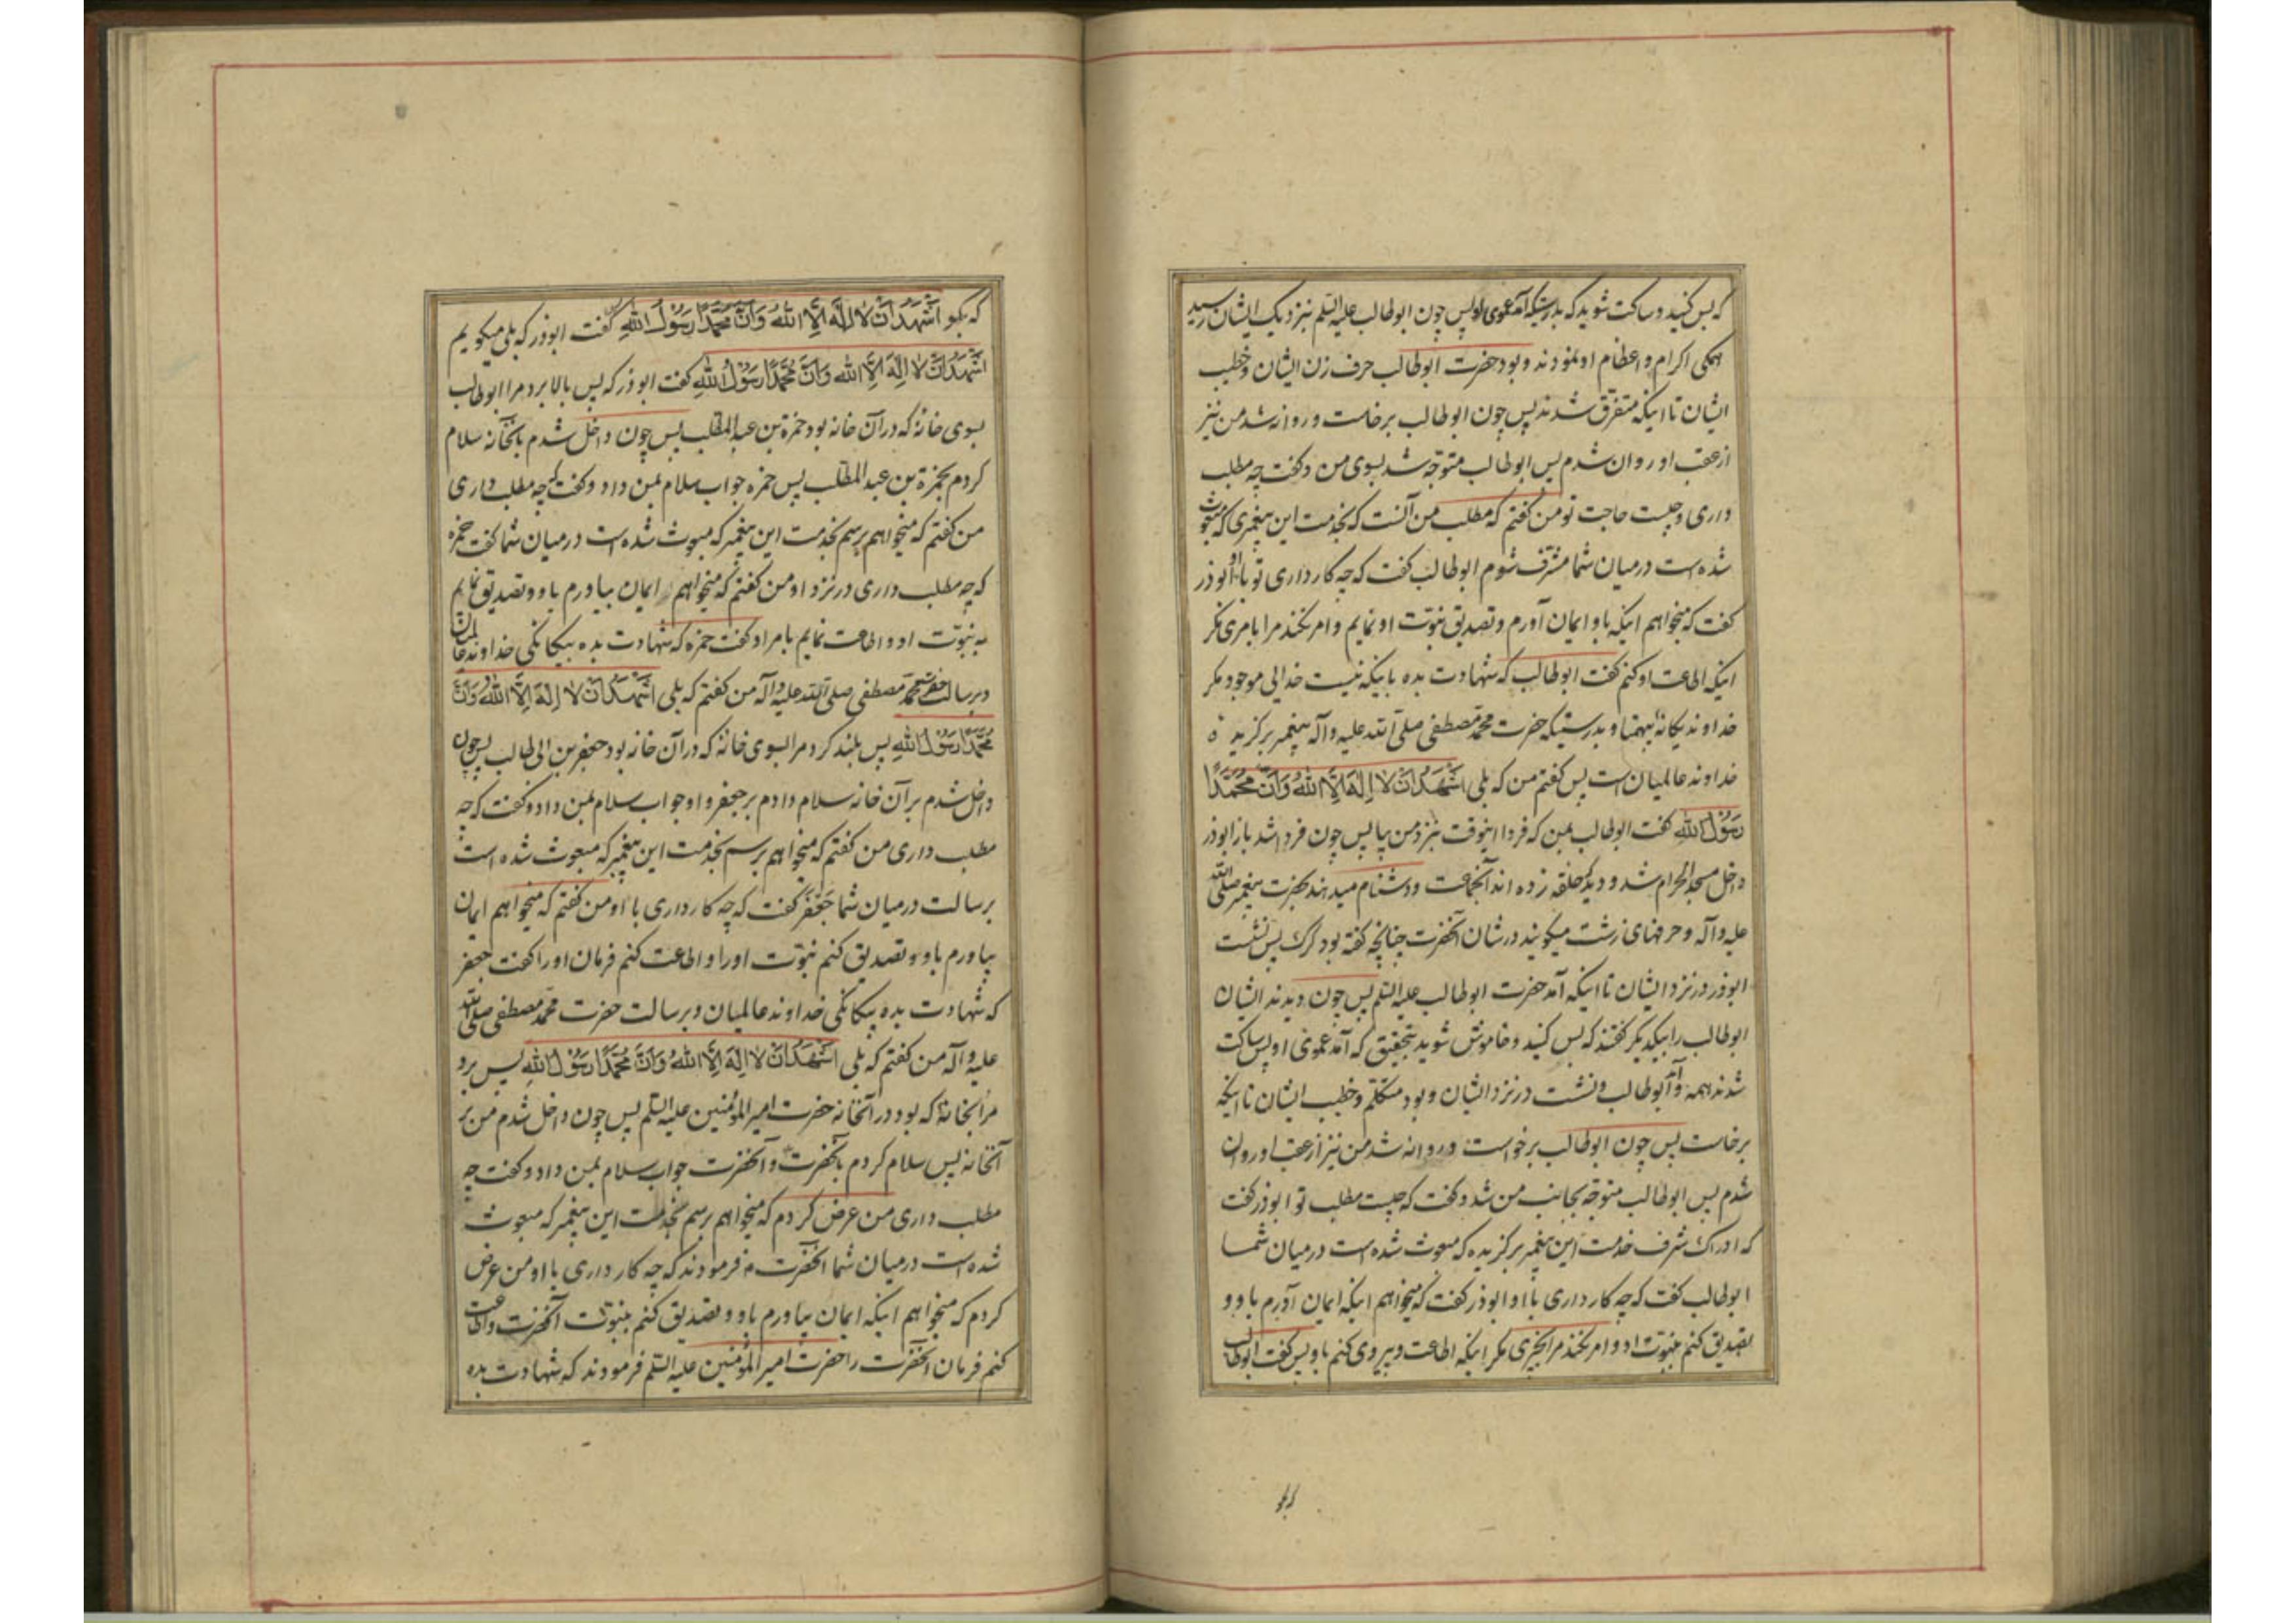 که بس کنید و ساکت شوید که بدرستیکه آمد عموی او پس چون ابوطالب علیه السلم بنزدیک ایشان رسید
همکی اکرام و اعظام او نمودند و بود حضرت ابوطالب حرف زن ایشان و خطیب
ایشان تا اینکه متفرق شدند پس چون ابوطالب برخاست و روانه شد من نیز
از عقب او روان شدم پس ابوطالب متوجّه شد بسوی من و کفت چه مطلب
داری و چیست حاجت تو من کفتم که مطلب من آنست که بخدمت این پیغمبری که مبعوث
شده است درمیان شما مشرّف شوم ابوطالب کفت که چه کار داری تو با او ابوذر
کفت که میخواهم اینکه باو ایمان آورم و تصدیق نبوّت او نمایم و امر نکند مرا بامری مکر
اینکه اطاعت او کنم کفت ابوطالب که شهادت بده باینکه نیست خدایی موجود مکر
خداوند یکانهٔ بیهمتا و بدرستیکه حضرت محمّد مصطفی صلی الله علیه و آله پیغمبر برکزیده
خداوند عالمیان است پس کفتم من که بلی اَشْهَدُ اَنْ لا اِلٰهَ اِلَّا اللهُ وَ اَنَّ مُحَمَّدًا
رَسُولُ اللهِ کفت ابوطالب بمن که فردا اینوقت بنزد من بیا پس چون فردا شد باز ابوذر
داخل مسجد الحرام شد و دید که حلقه زده اند آنجماعت و دشنام میدهند بحضرت پیغمبر صلی الله
علیه و آله و حرفهای زشت میکویند در شان آنحضرت چنانچه کفته بود کرک پس نشست
ابوذر در نزد ایشان تا اینکه آمد حضرت ابوطالب علیه السلم پس چون دیدند ایشان
ابوطالب را بیکدیکر کفتند که بس کنید و خاموش شوید بتحقیق که آمد عموی او پس ساکت
شدند همه و آمد ابوطالب و نشست در نزد ایشان و بود متکلم و خطیب ایشان تا اینکه
برخاست پس چون ابوطالب برخواست و روانه شد من نیز از عقب او روان
شدم پس ابوطالب متوجّه بجانب من شد و کفت که چیست مطلب تو ابوذر کفت
که ادراک شرف خدمت این پیغمبر برکزیده که مبعوث شده است درمیان شما
ابوطالب کفت که چه کار داری با او ابوذر کفت که میخواهم اینکه ایمان آورم باو و
تصدیق کنم بنبوّت او و امر نکند مرا بچیزی مکر اینکه اطاعت و پیروی کنم باو پس کفت ابوطالب
که بکو
که بکو اَشْهَدُ اَنْ لا اِلٰهَ اِلَّا اللهُ وَ اَنَّ مُحَمَّدًا رَسُولُ اللهِ کفت ابوذر که بلی میکویم
اَشْهَدُ اَنْ لا اِلٰهَ اِلَّا اللهُ وَ اَنَّ مُحَمَّدًا رَسُولُ اللهِ کفت ابوذر که پس بالا برد مرا ابوطالب
بسوی خانهٔ که در آن خانه بود حمزة بن عبد المطّلب پس چون داخل شدم بآنخانه سلام
کردم بحمزة بن عبد المطّلب پس حمزه جواب سلام بمن داد و کفت که چه مطلب داری
من کفتم که میخواهم برسم بخدمت این پیغمبر که مبعوث شده است درمیان شما کفت حمزه
که چه مطلب داری در نزد او من کفتم که میخواهم ایمان بیاورم باو و تصدیق نمایم
به نبوّت او و اطاعت نمایم بامر او کفت حمزه که شهادت بده بیکانکی خداوند عالمیان
و برسالت حضرت محمّد مصطفی صلی الله علیه و آله من کفتم که بلی اَشْهَدُ اَنْ لا اِلٰهَ اِلَّا اللهُ وَ اَنَّ
مُحَمَّدًا رَسُولُ اللهِ پس بلند کرد مرا بسوی خانهٔ که در آن خانه بود جعفر بن ابی طالب پس چون
داخل شدم بر آن خانه سلام دادم بر جعفر و او جواب سلام بمن داد و کفت که چه
مطلب داری من کفتم که میخواهم برسم بخدمت این پیغمبر که مبعوث شده است
برسالت درمیان شما جعفر کفت که چه کار داری با او من کفتم که میخواهم ایمان
بیاورم باو و تصدیق کنم نبوّت او را و اطاعت کنم فرمان او را کفت جعفر
که شهادت بده بیکانکی خداوند عالمیان و برسالت حضرت محمّد مصطفی صلی الله
علیه و آله من کفتم که بلی اَشْهَدُ اَنْ لا اِلٰهَ اِلَّا اللهُ وَ اَنَّ مُحَمَّدًا رَسُولُ اللهِ پس برد
مرا بخانهٔ که بود در آنخانه حضرت امیر المؤمنین علیه السلم پس چون داخل شدم من بر
آنخانه پس سلام کردم بآنحضرت و آنحضرت جواب سلام بمن داد و کفت چه
مطلب داری من عرض کردم که میخواهم برسم بخدمت این پیغمبر که مبعوث
شده است درمیان شما آنحضرت فرمودند که چه کار داری با او من عرض
کردم که میخواهم اینکه ایمان بیاورم باو و تصدیق کنم بنبوّت آنحضرت و اطاعت
کنم فرمان آنحضرت را حضرت امیر المؤمنین علیه السلم فرمودند که شهادت بده